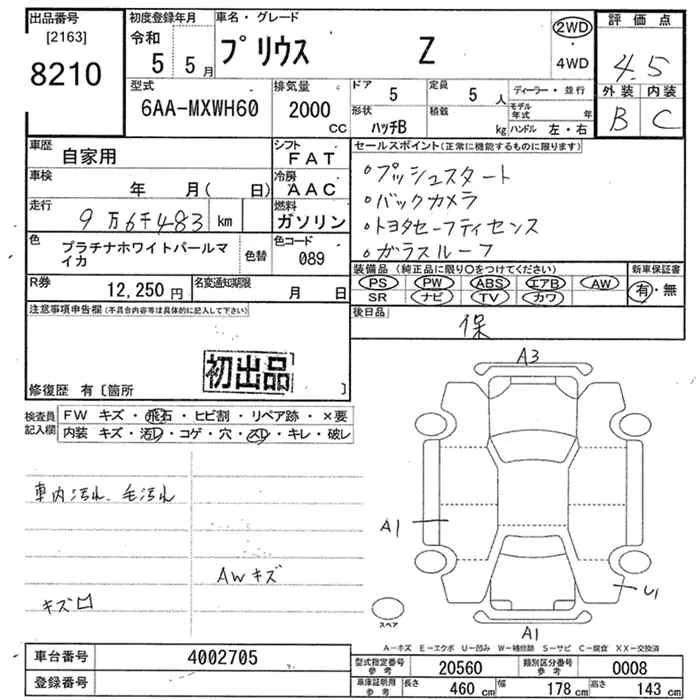 出品番号 初度登録年月 車名・グレード 評価点
[2163] 令和
8210 5 5月 プリウス Z 2WD ・ 4WD 4.5
型式 排気量 ドア 5 定員 5 人 ディーラー・並行 外装 内装
6AA-MXWH60 2000 cc 形状 ハッチB 積載 kg モデル年式 年 ハンドル 左・右 B C
車歴 自家用 シフト FAT セールスポイント(正常に機能するものに限ります)
車検 年 月( 日) 冷房 AAC
走行 9万6千483 km 燃料 ガソリン
・プッシュスタート
・バックカメラ
・トヨタセーフティセンス
・ガラスルーフ
色 プラチナホワイトパールマイカ 色替 色コード 089
装備品 (純正品に限り〇をつけてください) 新車保証書
PS PW ABS エアB AW 有・無
SR ナビ TV カワ
R券 12,250 円 名変通知期限 月 日
後日品 保
注意事項申告欄(不具合内容等は具体的に記入して下さい)
初出品
修復歴 有〔箇所 〕
検査員記入欄 FW キズ・飛石・ヒビ割・リペア跡・×要
内装 キズ・汚レ・コゲ・穴・スレ・キレ・破レ
車内汚れ、毛汚れ
AWキズ
キズ
A3
A1
U1
A1
スペア
A―キズ E―エクボ U―凹み W―補修跡 S―サビ C―腐食 XX―交換済
車台番号 4002705
登録番号
型式指定番号 参考 20560 類別区分番号 参考 0008
車庫証明用 参考 長さ 460 cm 幅 178 cm 高さ 143 cm